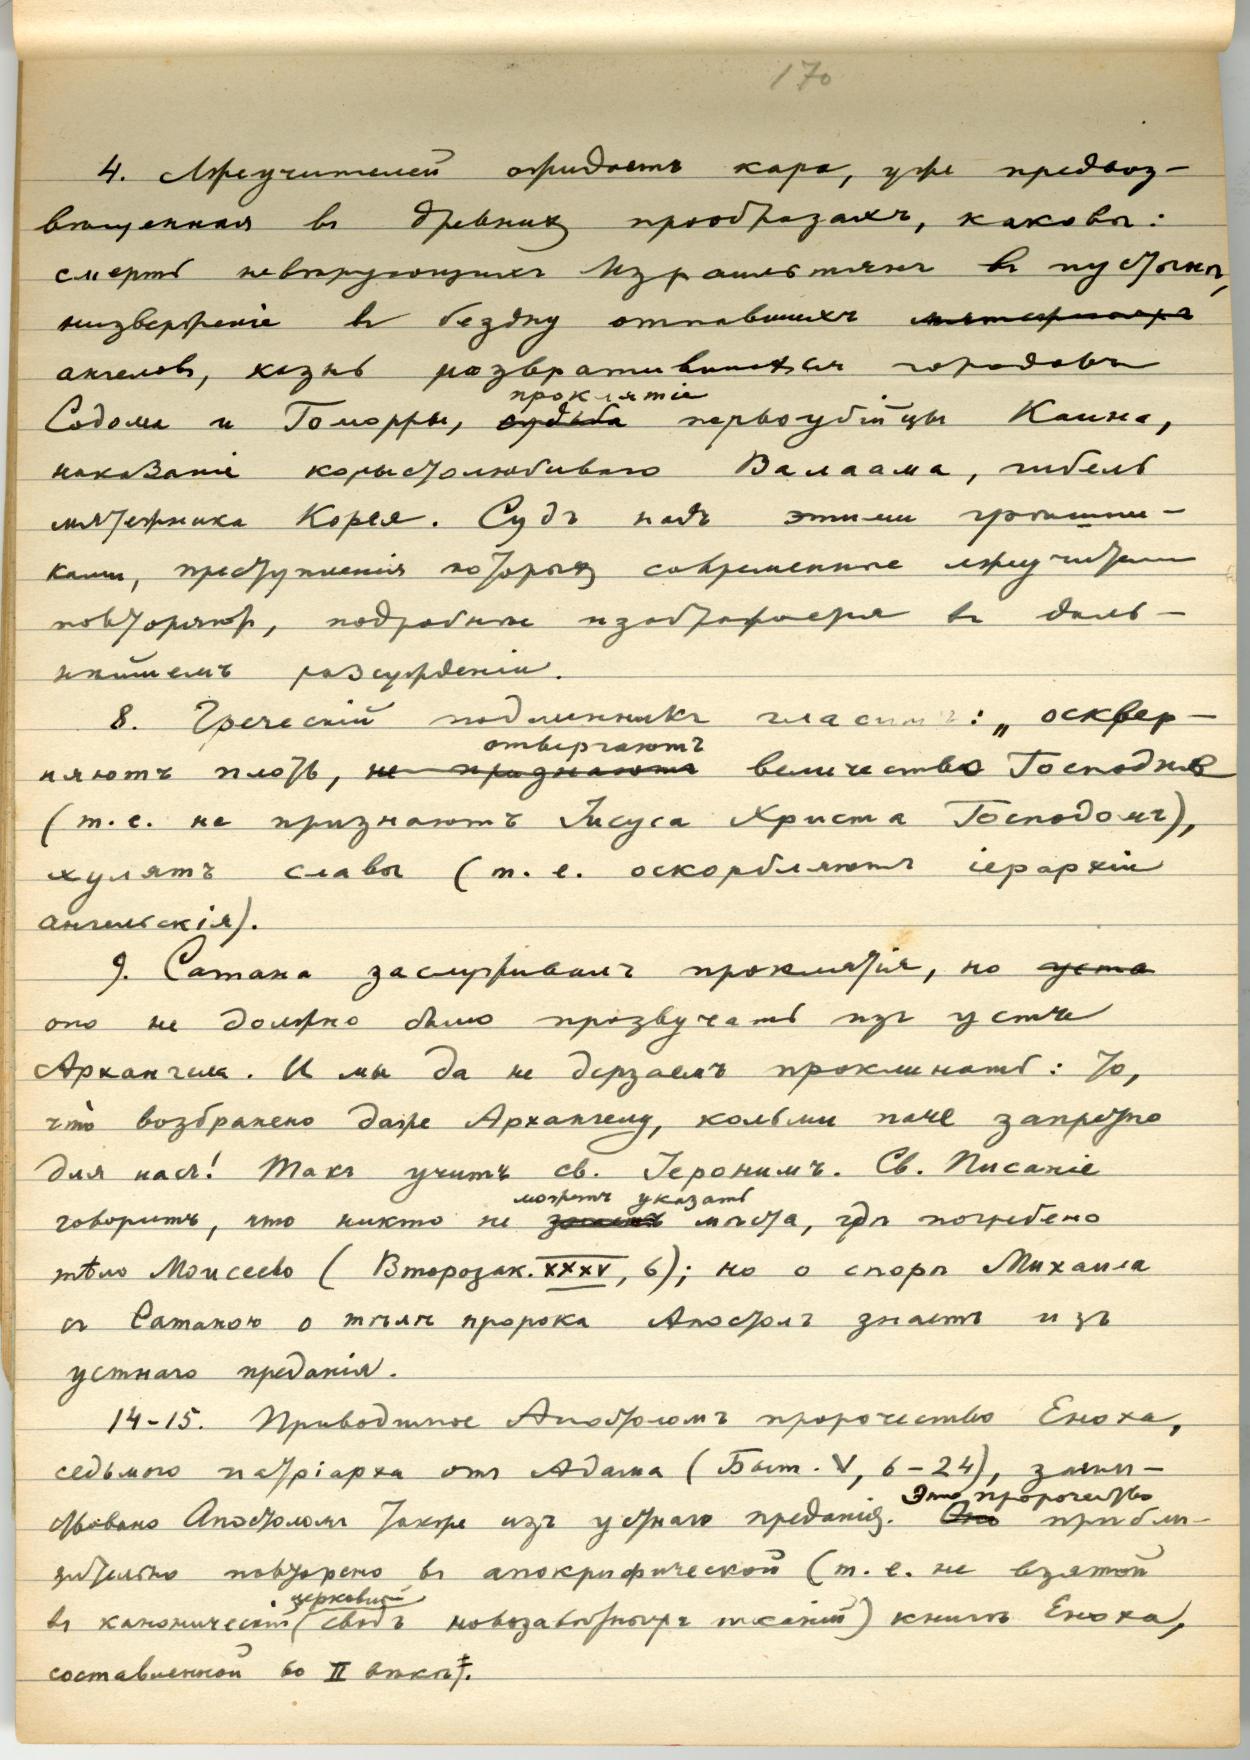 170
4. Лжеучителей ожидаетъ кара, уже предвоз-
вѣщенная въ древнихъ прообразахъ, каковы:
смерть невѣрующихъ Израильтянъ въ пустынѣ,
низверженіе въ бездну отпавшихъ мятежныхъ
ангеловъ, казнь развратившихся городовъ
проклятіе
Содома и Гоморры, судьба первоубійцы Каина,
наказаніе корыстолюбиваго Валаама, гибель
мятежника Корея. Судъ надъ этими грѣшни-
ками, преступленія которыхъ современные лжеучители
повторяютъ, подробнѣе изображается въ даль-
нѣйшемъ разсужденіи.
8. Греческій подлинникъ гласитъ: „осквер-
отвергаютъ
няютъ плоть, не признаютъ величество Господне
(т.е. не признаютъ Іисуса Христа Господомъ),
хулятъ славы (т.е. оскорбляютъ іерархіи
ангельскія).
9. Сатана заслуживалъ проклятія, но уста
оно не должно было прозвучать изъ устъ
Архангела. И мы да не дерзаемъ проклинать: то,
что возбранено даже Архангелу, кольми паче запретно
для насъ! Такъ учитъ св. Іеронимъ. Св. Писаніе
можетъ указать
говоритъ, что никто не мѣста, гдѣ погребено
тѣло Моисеево (Второзак. XXXV, 6); но о спорѣ Михаила
съ Сатаною о тѣлѣ пророка Апостолъ знаетъ изъ
устнаго преданія.
14-15. Приводимое Апостоломъ пророчество Еноха,
седьмого патріарха отъ Адама (Быт. V, 6-24), заим-
Это пророчество
ствовано Апостоломъ также изъ устнаго преданія. Оно прибли-
зительно повторено въ апокрифической (т.е. не взятой
церковный
въ каноническій (сводъ новозавѣтныхъ писаній) книгѣ Еноха,
составленной во II вѣкѣ.